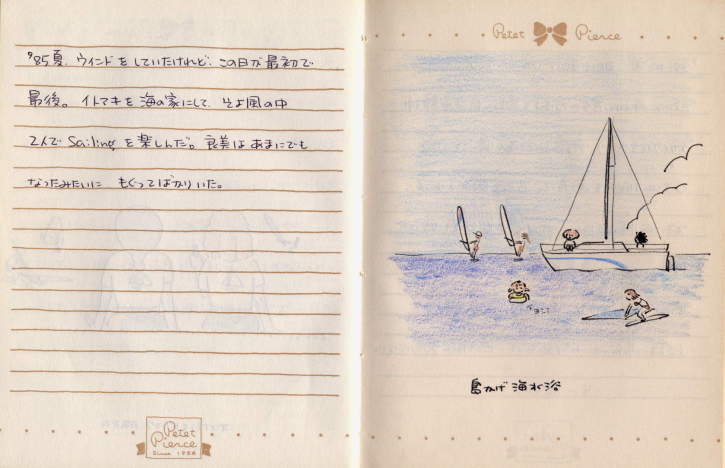 '85夏、ウィンドをしていたけれど、この日が最初で
最後。イトマキを海の家にして、そよ風の中
2人でSailingを楽しんだ。良美はあまにでも
なったみたいに もぐってばかりいた。
Petet Pierce
Since 1988
Petet Pierce
島かげ海水浴